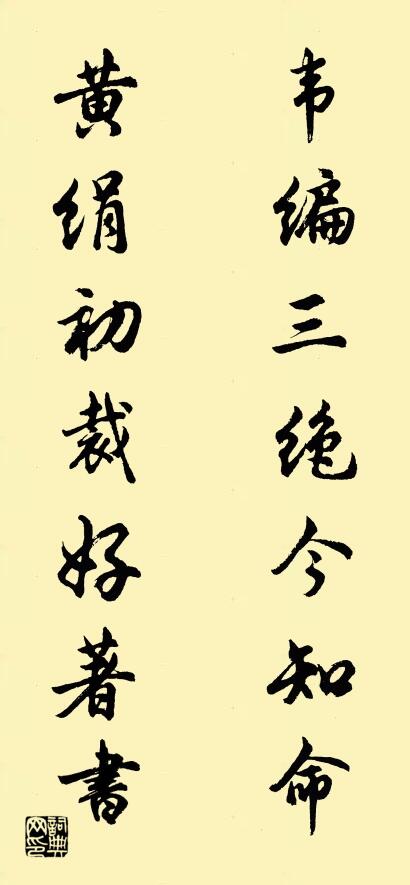 韦编三绝今知命
黄绢初裁好著書
詞典网印